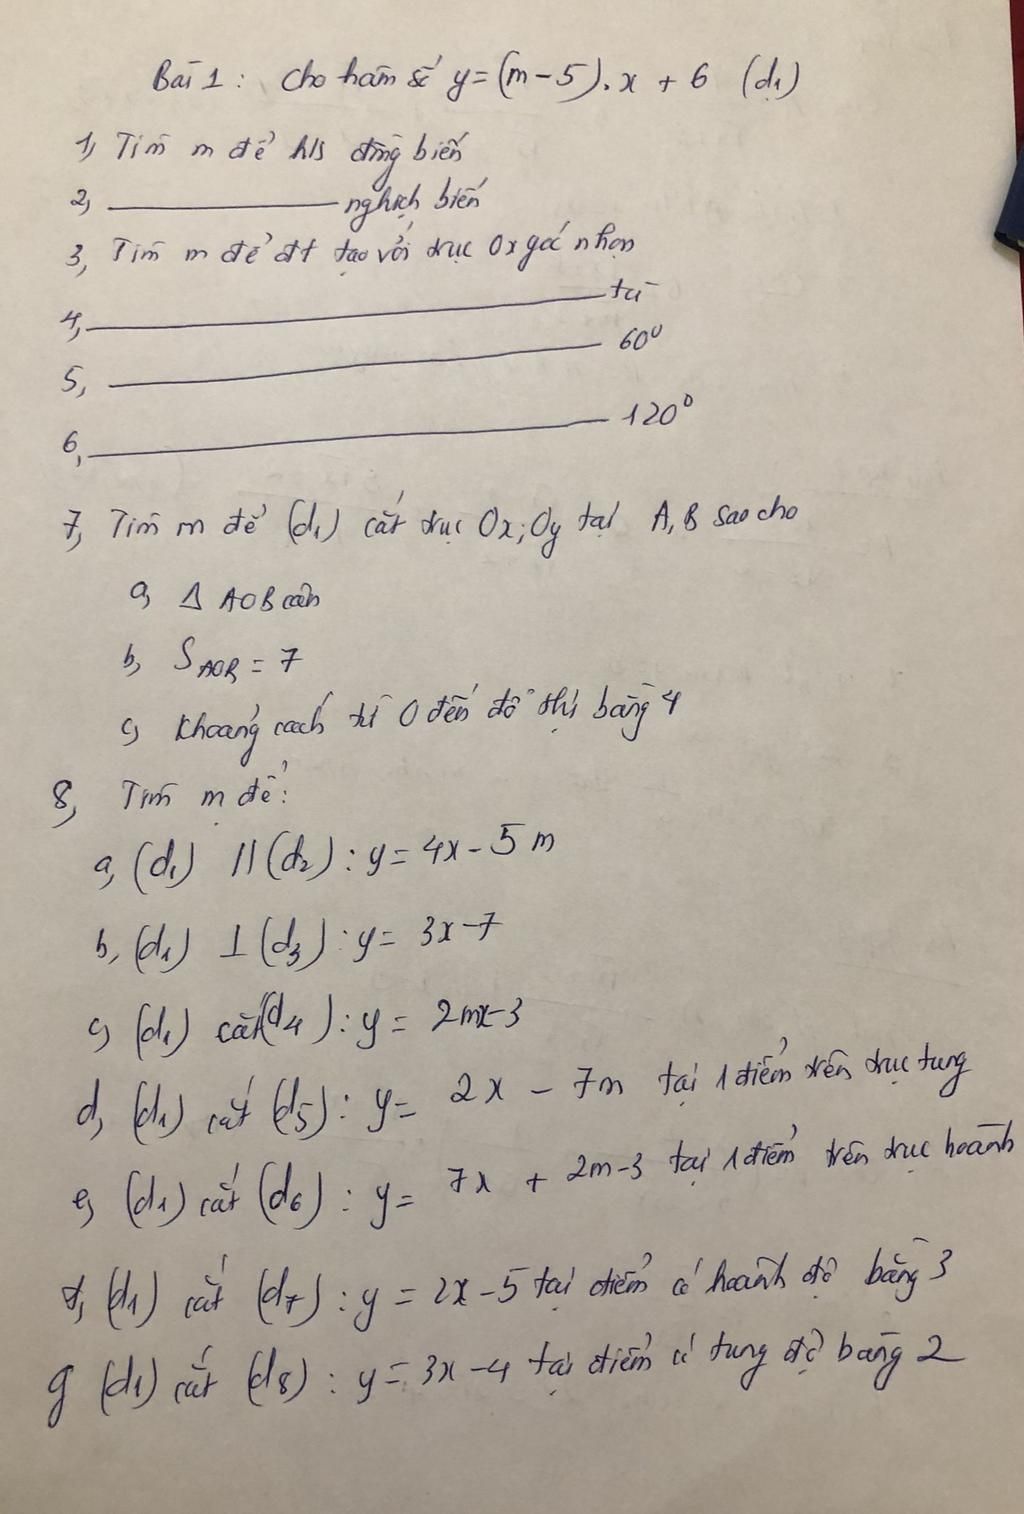 Bài 1: Cho hàm số y = (m - 5). x + 6 (d₁)
1, Tìm m để h/s đồng biến
2, ———— nghịch biến
3, Tìm m để đt tạo với trục Ox góc nhọn
4, ———— tù
5, ———— 60⁰
6, ———— 120⁰
7, Tìm m để (d₁) cắt trục Ox; Oy tại A, B sao cho
a, Δ AOB cân
b, S AOB = 7
c, Khoảng cách từ O đến đồ thị bằng 4
8, Tìm m để:
a, (d₁) // (d₂) : y = 4x - 5m
b, (d₁) ⊥ (d₃) : y = 3x - 7
c, (d₁) cắt (d₄) : y = 2mx - 3
d, (d₁) cắt (d₅) : y = 2x - 7m tại 1 điểm trên trục tung
e, (d₁) cắt (d₆) : y = 7x + 2m - 3 tại 1 điểm trên trục hoành
f, (d₁) cắt (d₇) : y = 2x - 5 tại điểm có hoành độ bằng 3
g (d₁) cắt (d₈) : y = 3x - 4 tại điểm có tung độ bằng 2